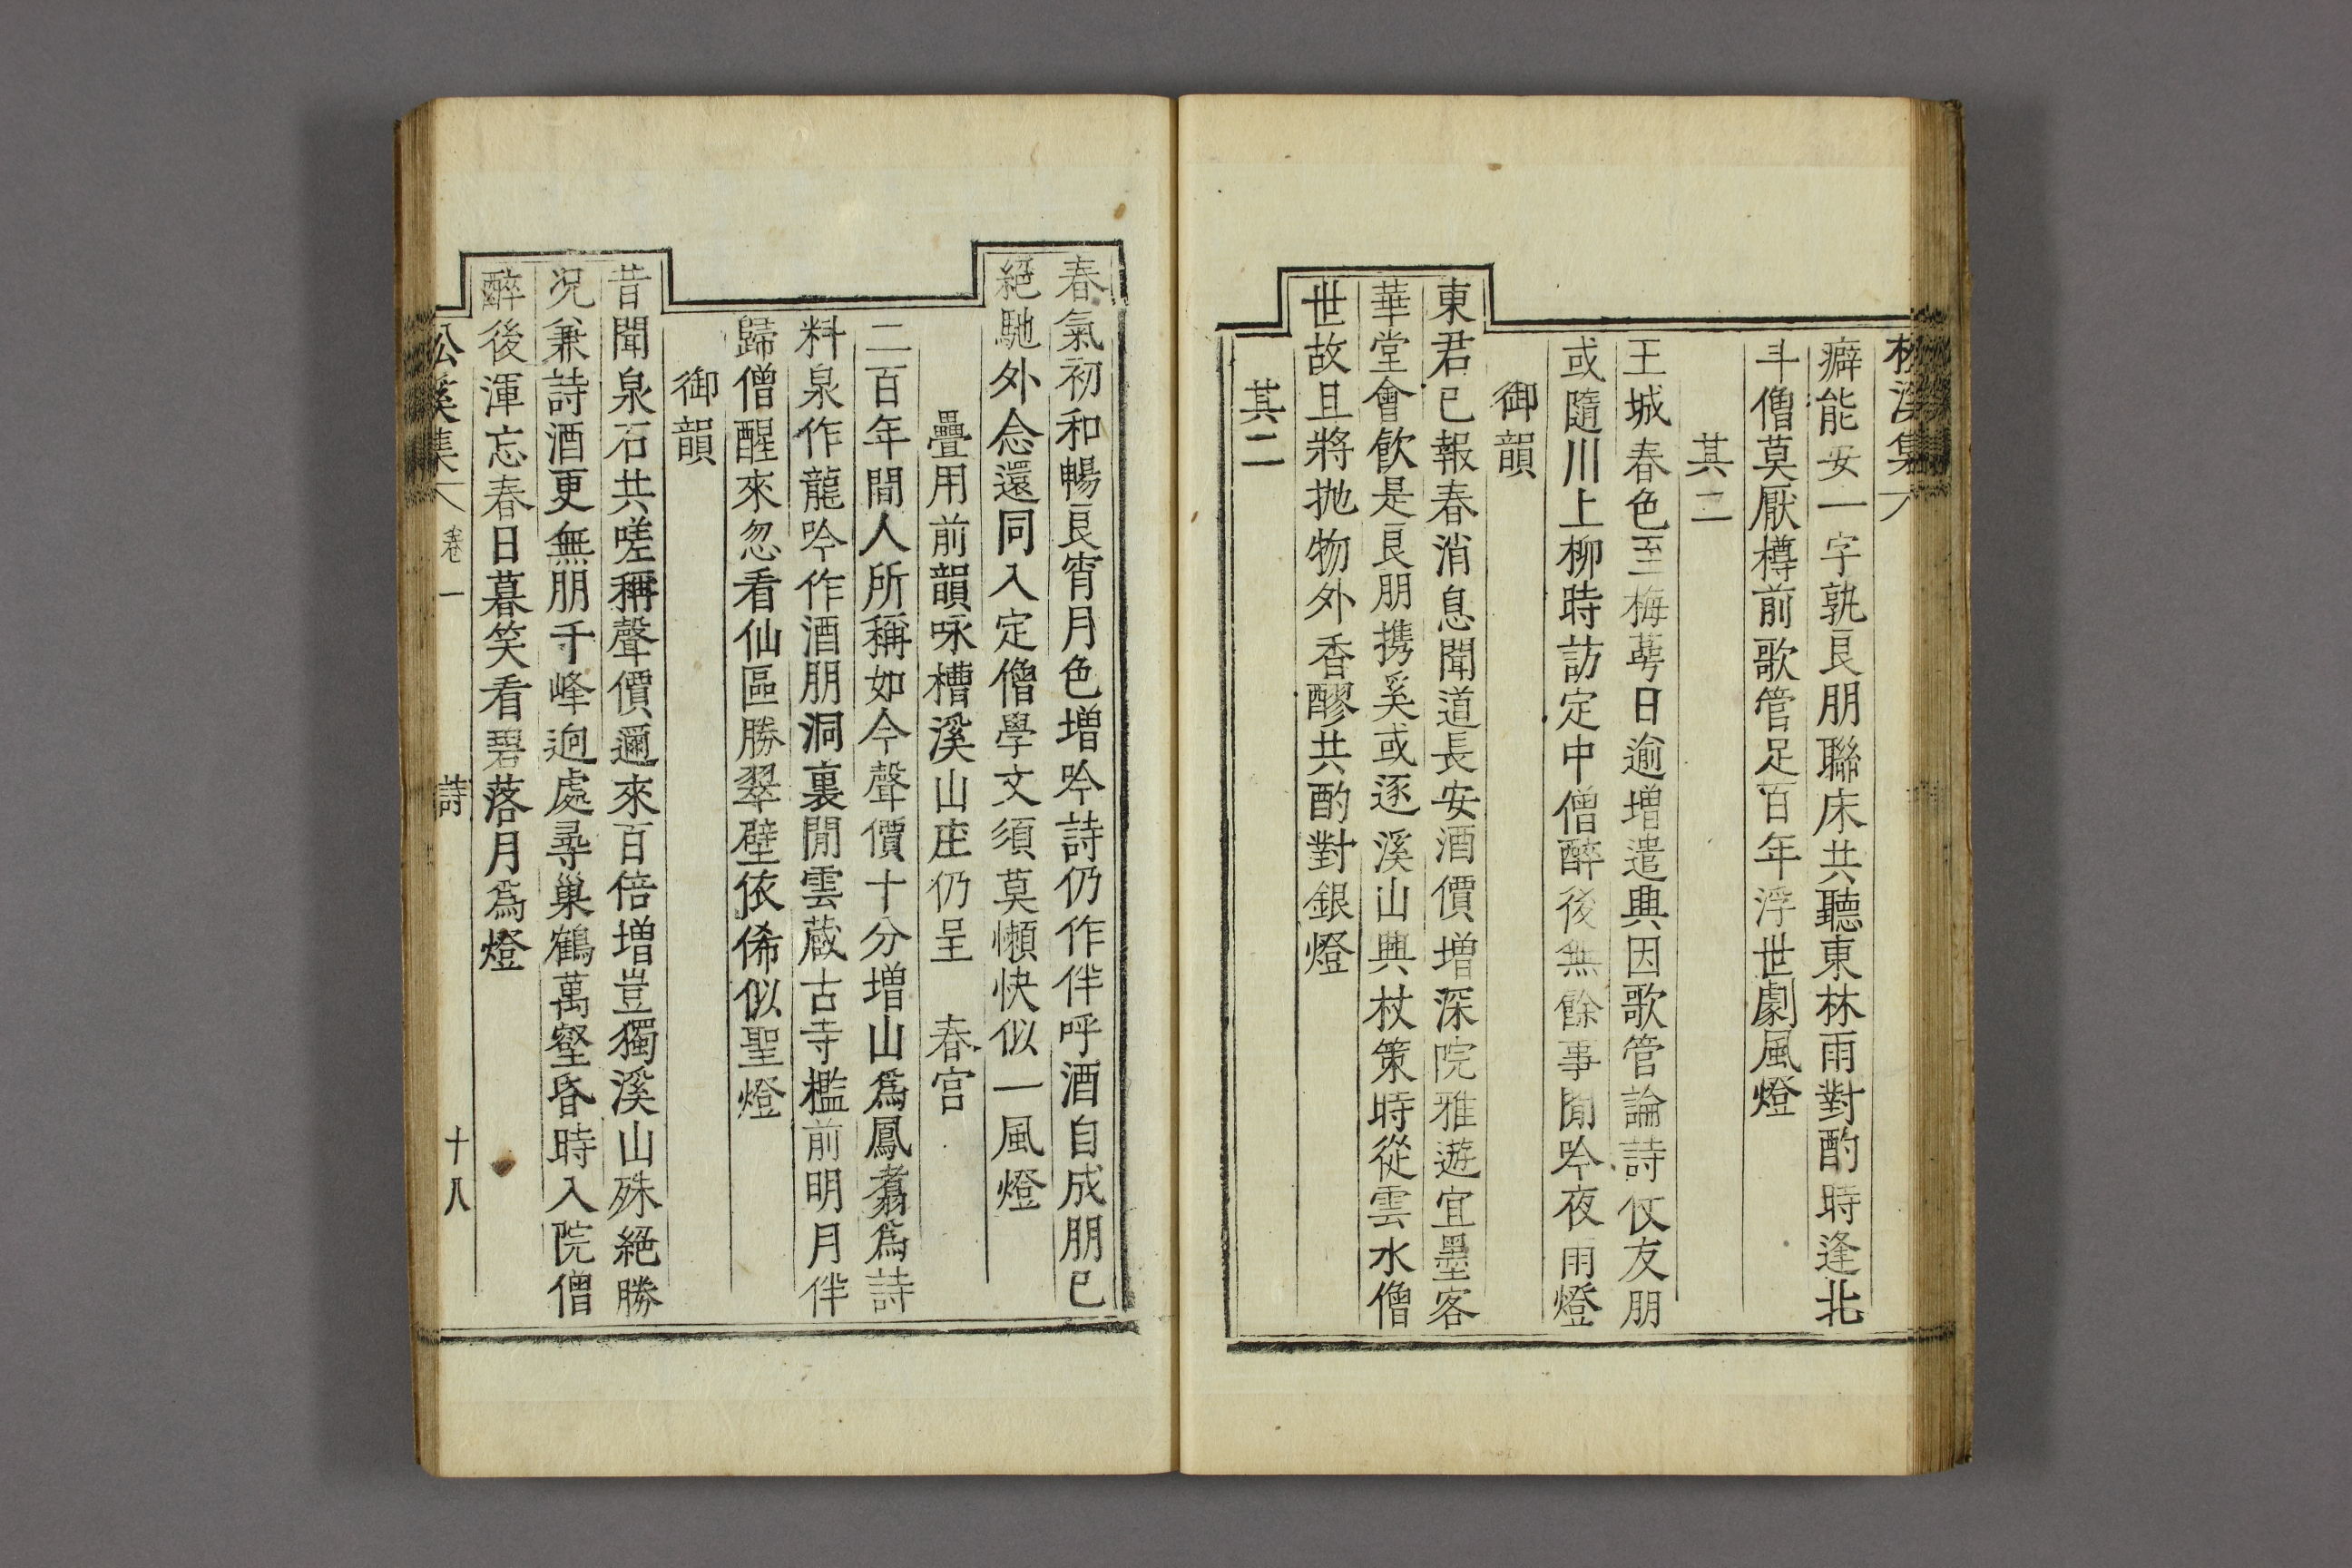 松溪集
癖能安一字孰良朋聯床共聽東林雨對酌時逢北
斗僧莫厭樽前歌管足百年浮世劇風燈
其二
王城春色至梅萼日逾增遣興因歌管論詩仗友朋
或隨川上柳時訪定中僧醉後無餘事閒吟夜雨燈
御韻
東君已報春消息聞道長安酒價增深院雅遊宜墨客
華堂會飮是良朋携奚或逐溪山興杖策時從雲水僧
世故且將抛物外香醪共酌對銀燈
其二
春氣初和暢良宵月色增吟詩仍作伴呼酒自成朋已
絕馳外念還同入定僧學文須莫懶快似一風燈
疊用前韻咏槽溪山庄仍呈 春宮
二百年間人所稱如今聲價十分增山爲鳳翥爲詩
料泉作龍吟作酒朋洞裏閒雲蔵古寺檻前明月伴
歸僧醒來忽看仙區勝翠壁依俙似聖燈
御韻
昔聞泉石共嗟稱聲價邇來百倍增豈獨溪山殊絕勝
况兼詩酒更無朋千峰逈處尋巢鶴萬壑昏時入院僧
醉後渾忘春日暮笑看碧落月爲燈
松溪集 卷一 詩 十八